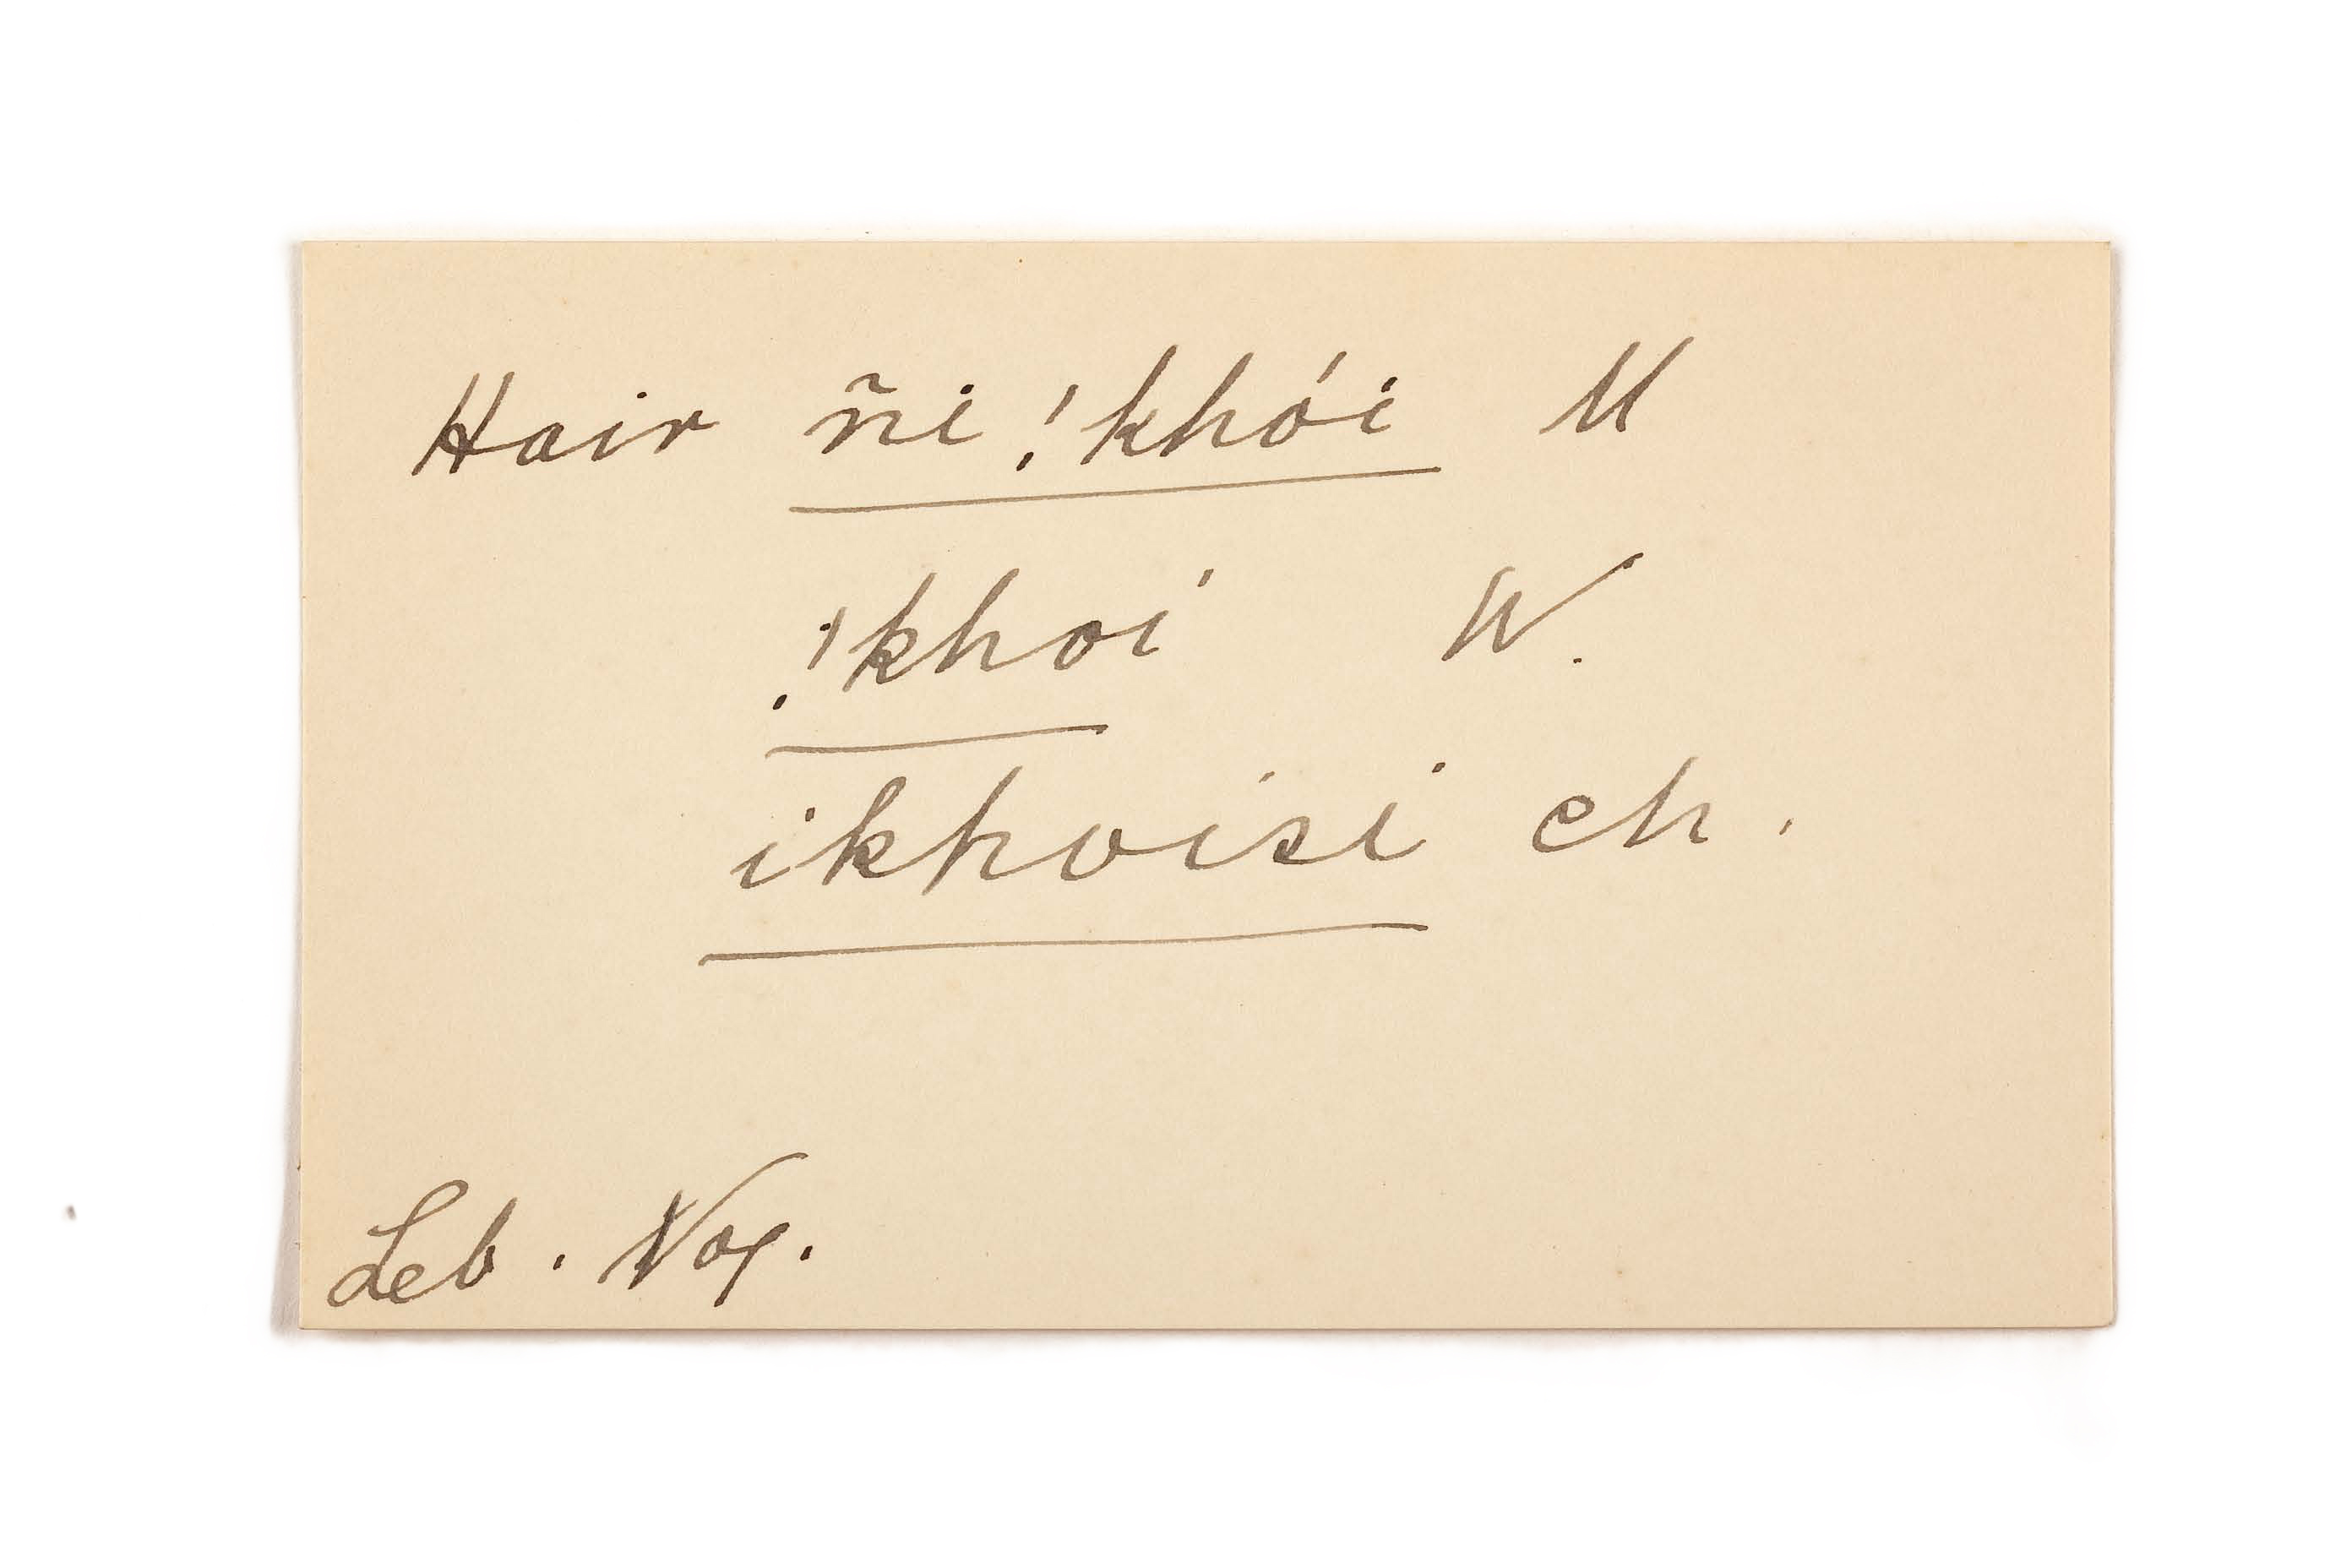 Hair ñi !khói M
!khoi W.
ikhoisi ch.
Leb. Nog.